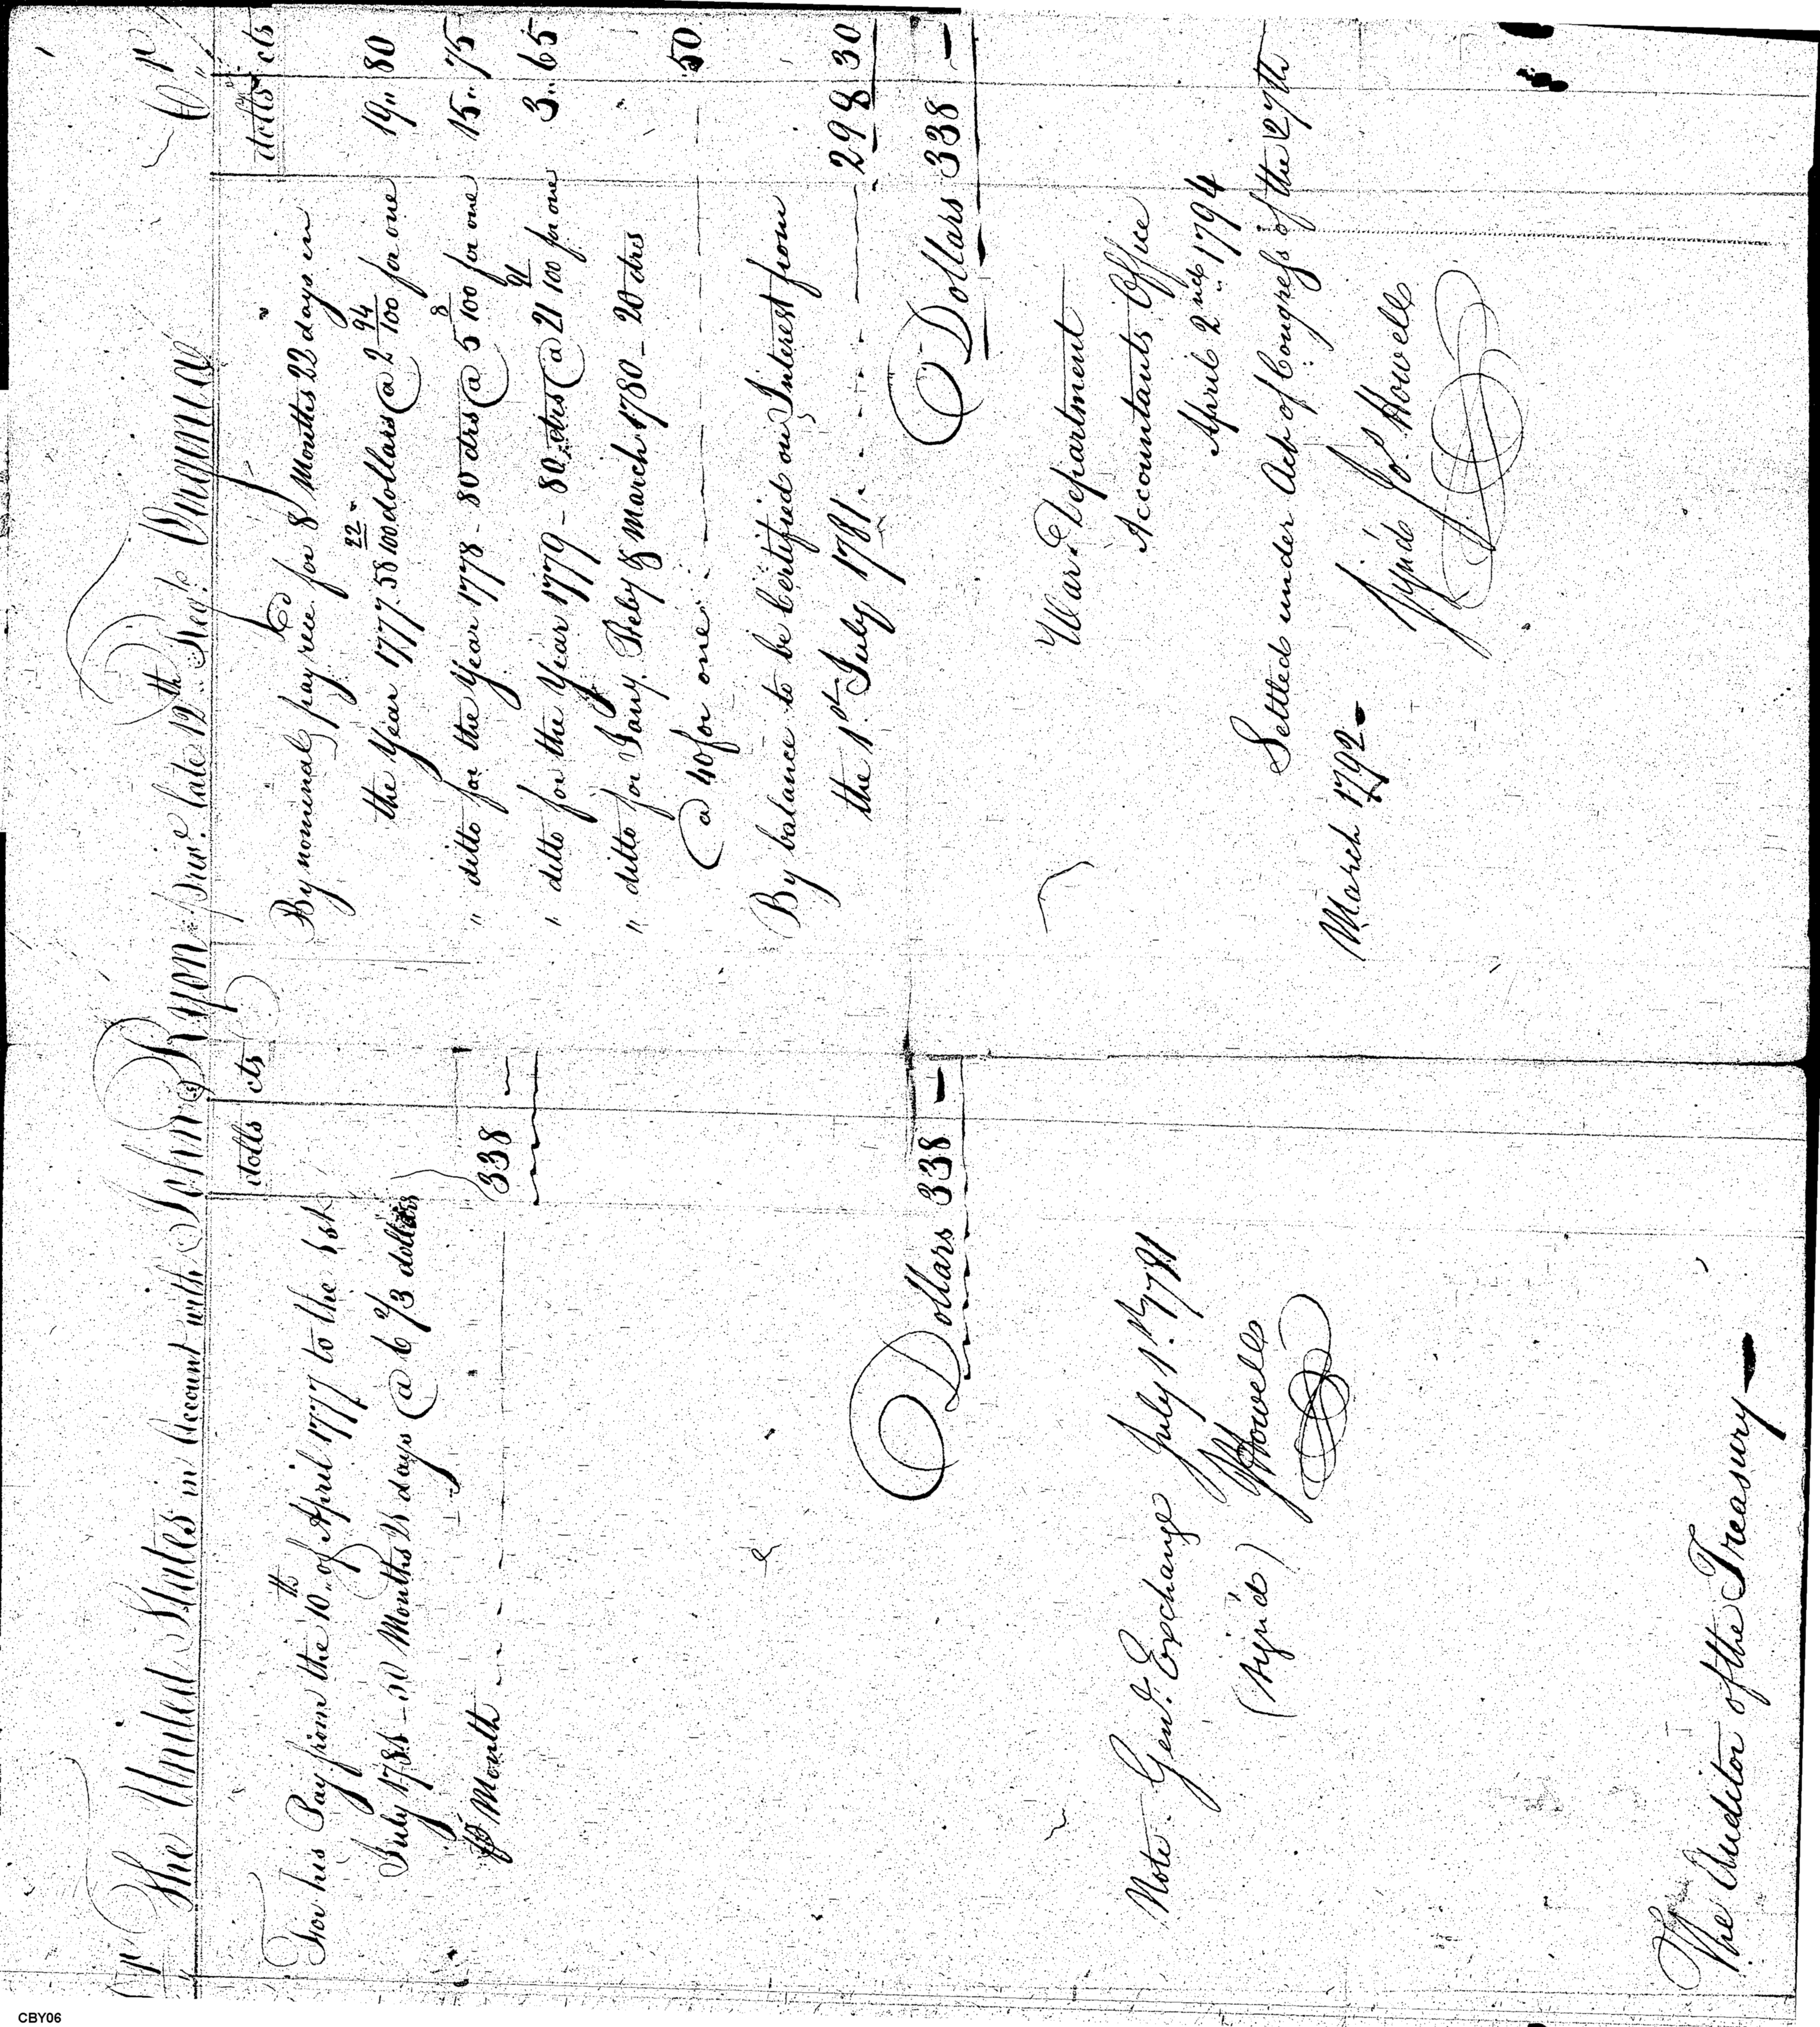 Dr The United States in Account with John Ryon priv.t late 12th Reg.t Virginia Cr
dolls cts
For his Pay from the 10th of April 1777 to the 1st
July 1781 – 50 Months 21 days @ 6 2/3 dollars
⅌ Month 338 —
Dollars 338 —
Note. Gen.l Exchange July 1st 1781
(sign'd) J Howell
The Auditor of the Treasury
dolls cts
By nominal pay rec.d for 8 Months 22 days in
the Year 1777. 58 22/100 dollars @ 2 94/100 for one 19 " 80
" ditto for the Year 1778 – 80 drs @ 5 8/100 for one 15 " 75
" ditto for the Year 1779 – 80 drs @ 21 91/100 for one 3 " 65
" ditto for Jany. Feby & March 1780 – 20 drs
@ 40 for one 50
By balance to be Certified on Interest from
the 1st July 1781. 298 30
Dollars 338 —
War Department
Accountants Office
April 2nd 1794
Settled under Act of Congress of the 27th
March 1792
Sign'd Jos. Howell
CBY06